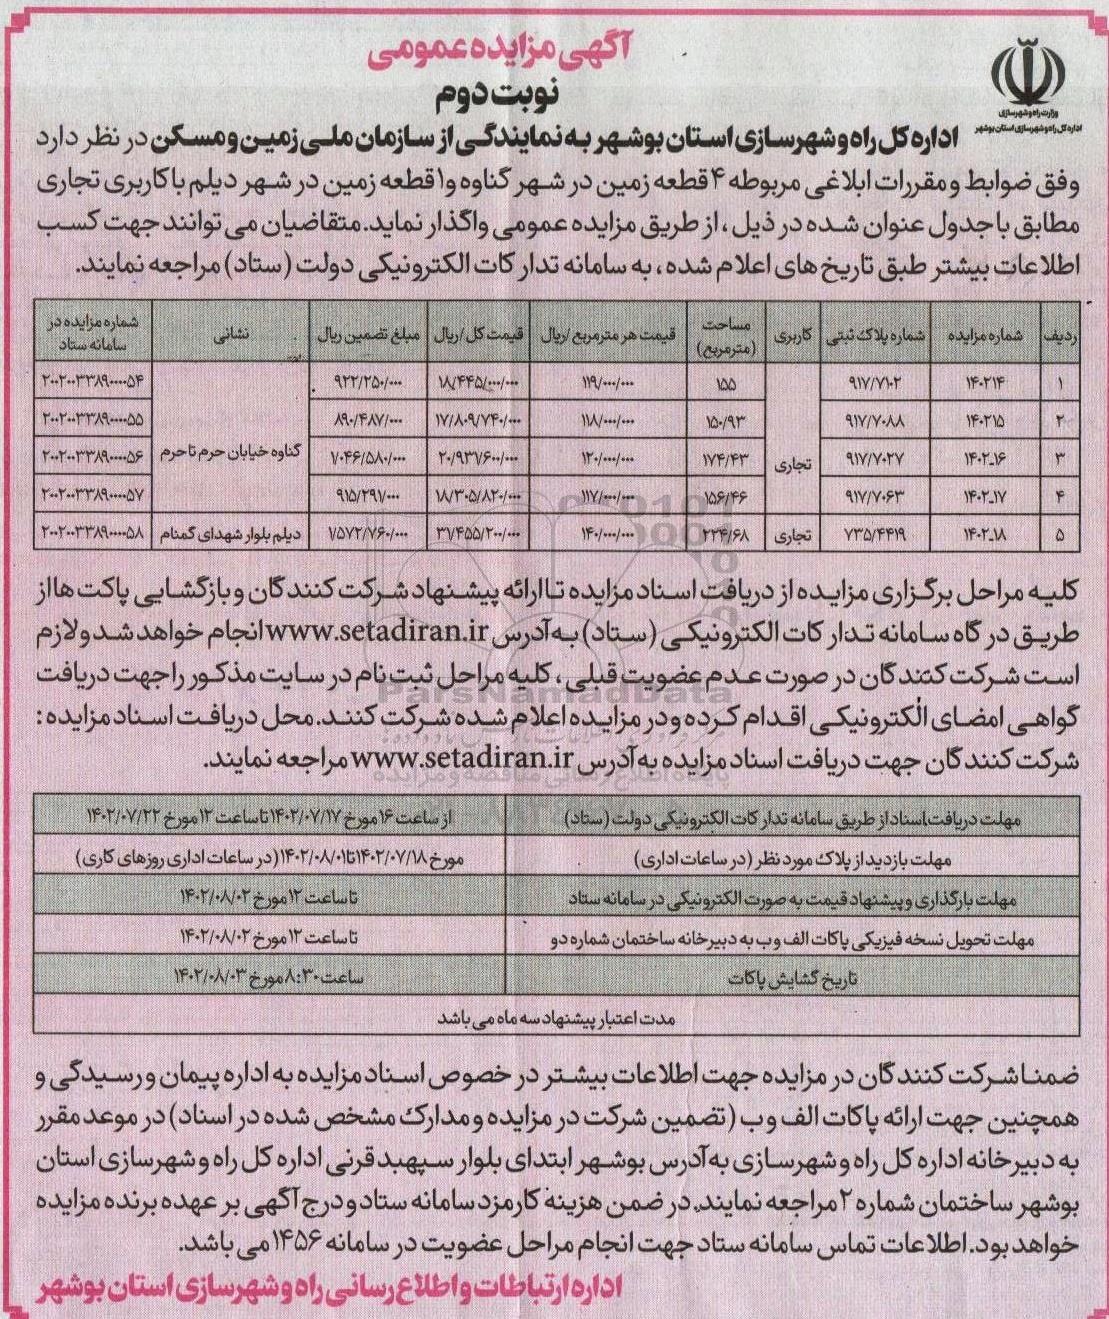 آگهی مزایده عمومی
نوبت دوم
وزارت راه و شهرسازی
اداره کل راه و شهرسازی استان بوشهر
اداره کل راه و شهرسازی استان بوشهر به نمایندگی از سازمان ملی زمین و مسکن در نظر دارد
وفق ضوابط و مقررات ابلاغی مربوطه ۴ قطعه زمین در شهر گناوه و ۱ قطعه زمین در شهر دیلم با کاربری تجاری
مطابق با جدول عنوان شده در ذیل ، از طریق مزایده عمومی واگذار نماید. متقاضیان می توانند جهت کسب
اطلاعات بیشتر طبق تاریخ های اعلام شده ، به سامانه تدارکات الکترونیکی دولت (ستاد) مراجعه نمایند.
ردیف شماره مزایده شماره پلاک ثبتی کاربری مساحت (مترمربع) قیمت هر مترمربع/ریال قیمت کل/ریال مبلغ تضمین ریال نشانی شماره مزایده در سامانه ستاد
۱ ۱۴۰۲۱۴ ۹۱۷/۷۱۰۲ تجاری ۱۵۵ ۱۱۹/۰۰۰/۰۰۰ ۱۸/۴۴۵/۰۰۰/۰۰۰ ۹۲۲/۲۵۰/۰۰۰ گناوه خیابان حرم تا حرم ۲۰۰۲۰۰۳۳۸۹۰۰۰۰۵۴
۲ ۱۴۰۲۱۵ ۹۱۷/۷۰۸۸ ۱۵۰/۹۳ ۱۱۸/۰۰۰/۰۰۰ ۱۷/۸۰۹/۷۴۰/۰۰۰ ۸۹۰/۴۸۷/۰۰۰ ۲۰۰۲۰۰۳۳۸۹۰۰۰۰۵۵
۳ ۱۴۰۲_۱۶ ۹۱۷/۷۰۲۷ ۱۷۴/۴۳ ۱۲۰/۰۰۰/۰۰۰ ۲۰/۹۳۱/۶۰۰/۰۰۰ ۱/۰۴۶/۵۸۰/۰۰۰ ۲۰۰۲۰۰۳۳۸۹۰۰۰۰۵۶
۴ ۱۴۰۲_۱۷ ۹۱۷/۷۰۶۳ ۱۵۶/۴۶ ۱۱۷/۰۰۰/۰۰۰ ۱۸/۳۰۵/۸۲۰/۰۰۰ ۹۱۵/۲۹۱/۰۰۰ ۲۰۰۲۰۰۳۳۸۹۰۰۰۰۵۷
۵ ۱۴۰۲_۱۸ ۷۳۵/۴۴۱۹ تجاری ۲۲۴/۶۸ ۱۴۰/۰۰۰/۰۰۰ ۳۱/۴۵۵/۲۰۰/۰۰۰ ۱/۵۷۲/۷۶۰/۰۰۰ دیلم بلوار شهدای گمنام ۲۰۰۲۰۰۳۳۸۹۰۰۰۰۵۸
کلیه مراحل برگزاری مزایده از دریافت اسناد مزایده تا ارائه پیشنهاد شرکت کنندگان و بازگشایی پاکت ها از
طریق درگاه سامانه تدارکات الکترونیکی (ستاد) به آدرس www.setadiran.ir انجام خواهد شد و لازم
است شرکت کنندگان در صورت عدم عضویت قبلی ، کلیه مراحل ثبت نام در سایت مذکور را جهت دریافت
گواهی امضای الکترونیکی اقدام کرده و در مزایده اعلام شده شرکت کنند. محل دریافت اسناد مزایده :
شرکت کنندگان جهت دریافت اسناد مزایده به آدرس www.setadiran.ir مراجعه نمایند.
ParsNamadData
پایگاه اطلاع رسانی مناقصه و مزایده
مهلت دریافت اسناد از طریق سامانه تدارکات الکترونیکی دولت (ستاد) از ساعت ۱۶ مورخ ۱۴۰۲/۰۷/۱۷ تا ساعت ۱۲ مورخ ۱۴۰۲/۰۷/۲۲
مهلت بازدید از پلاک مورد نظر (در ساعات اداری) مورخ ۱۴۰۲/۰۷/۱۸ تا ۱۴۰۲/۰۸/۰۱ (در ساعات اداری روزهای کاری)
مهلت بارگذاری و پیشنهاد قیمت به صورت الکترونیکی در سامانه ستاد تا ساعت ۱۲ مورخ ۱۴۰۲/۰۸/۰۲
مهلت تحویل نسخه فیزیکی پاکات الف و ب به دبیرخانه ساختمان شماره دو تا ساعت ۱۲ مورخ ۱۴۰۲/۰۸/۰۲
تاریخ گشایش پاکات ساعت ۸:۳۰ مورخ ۱۴۰۲/۰۸/۰۳
مدت اعتبار پیشنهاد سه ماه می باشد
ضمنا شرکت کنندگان در مزایده جهت اطلاعات بیشتر در خصوص اسناد مزایده به اداره پیمان و رسیدگی و
همچنین جهت ارائه پاکات الف و ب (تضمین شرکت در مزایده و مدارک مشخص شده در اسناد) در موعد مقرر
به دبیرخانه اداره کل راه و شهرسازی به آدرس بوشهر ابتدای بلوار سپهبد قرنی اداره کل راه و شهرسازی استان
بوشهر ساختمان شماره ۲ مراجعه نمایند. در ضمن هزینه کارمزد سامانه ستاد و درج آگهی بر عهده برنده مزایده
خواهد بود. اطلاعات تماس سامانه ستاد جهت انجام مراحل عضویت در سامانه ۱۴۵۶ می باشد.
اداره ارتباطات و اطلاع رسانی راه و شهرسازی استان بوشهر